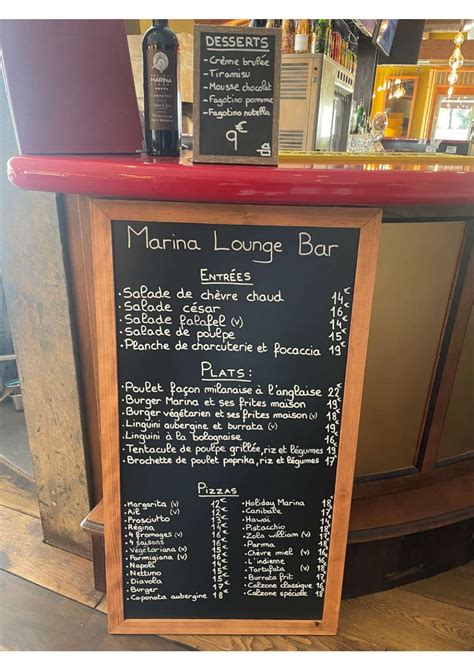 MARINA
DESSERTS
- Crème brulée
- Tiramisu
- Mousse chocolat
- Fagotino pomme
- Fagotino nutella
9€
Marina Lounge Bar
ENTRÉES
• Salade de chèvre chaud 14€
• Salade césar 16€
• Salade falafel (v) 14€
• Salade de poulpe 15€
• Planche de charcuterie et focaccia 19€
PLATS:
• Poulet façon milanaise à l'anglaise 22€
• Burger Marina et ses frites maison 19€
• Burger végétarien et ses frites maison (v) 18€
• Linguini aubergine et burrata (v) 19€
• Linguini à la bolognaise 16€
• Tentacule de poulpe grillée, riz et légumes 19€
• Brochette de poulet paprika, riz et légumes 17€
PIZZAS
• Margarita (v) 12€
• Ail (v) 12€
• Prosciutto 13€
• Régina 14€
• 4 fromages (v) 16€
• 4 saisons 16€
• Végétariana (v) 15€
• Parmigiana (v) 16€
• Napoli
• Nettuno
• Diavola
• Burger
• Caponata aubergine 18€
• Holiday Marina 18€
• Canibale
• Hawaï
• Pistacchio
• Zola william (v)
• Parma
• Chèvre miel (v)
• L'indienne
• Tartufata (v)
• Burrata frit
• Calzone classique
• Calzone spéciale 18€